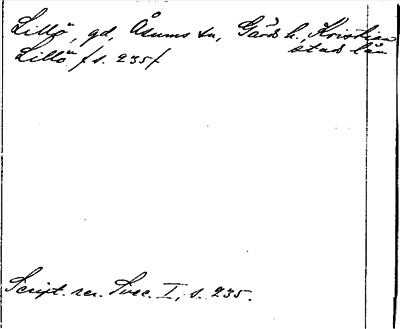 Lillö, gd, Åsums sn, Gärds h., Kristian
stad län
Lillö /s. 235/
Script. rer. Svec. I, s. 235.